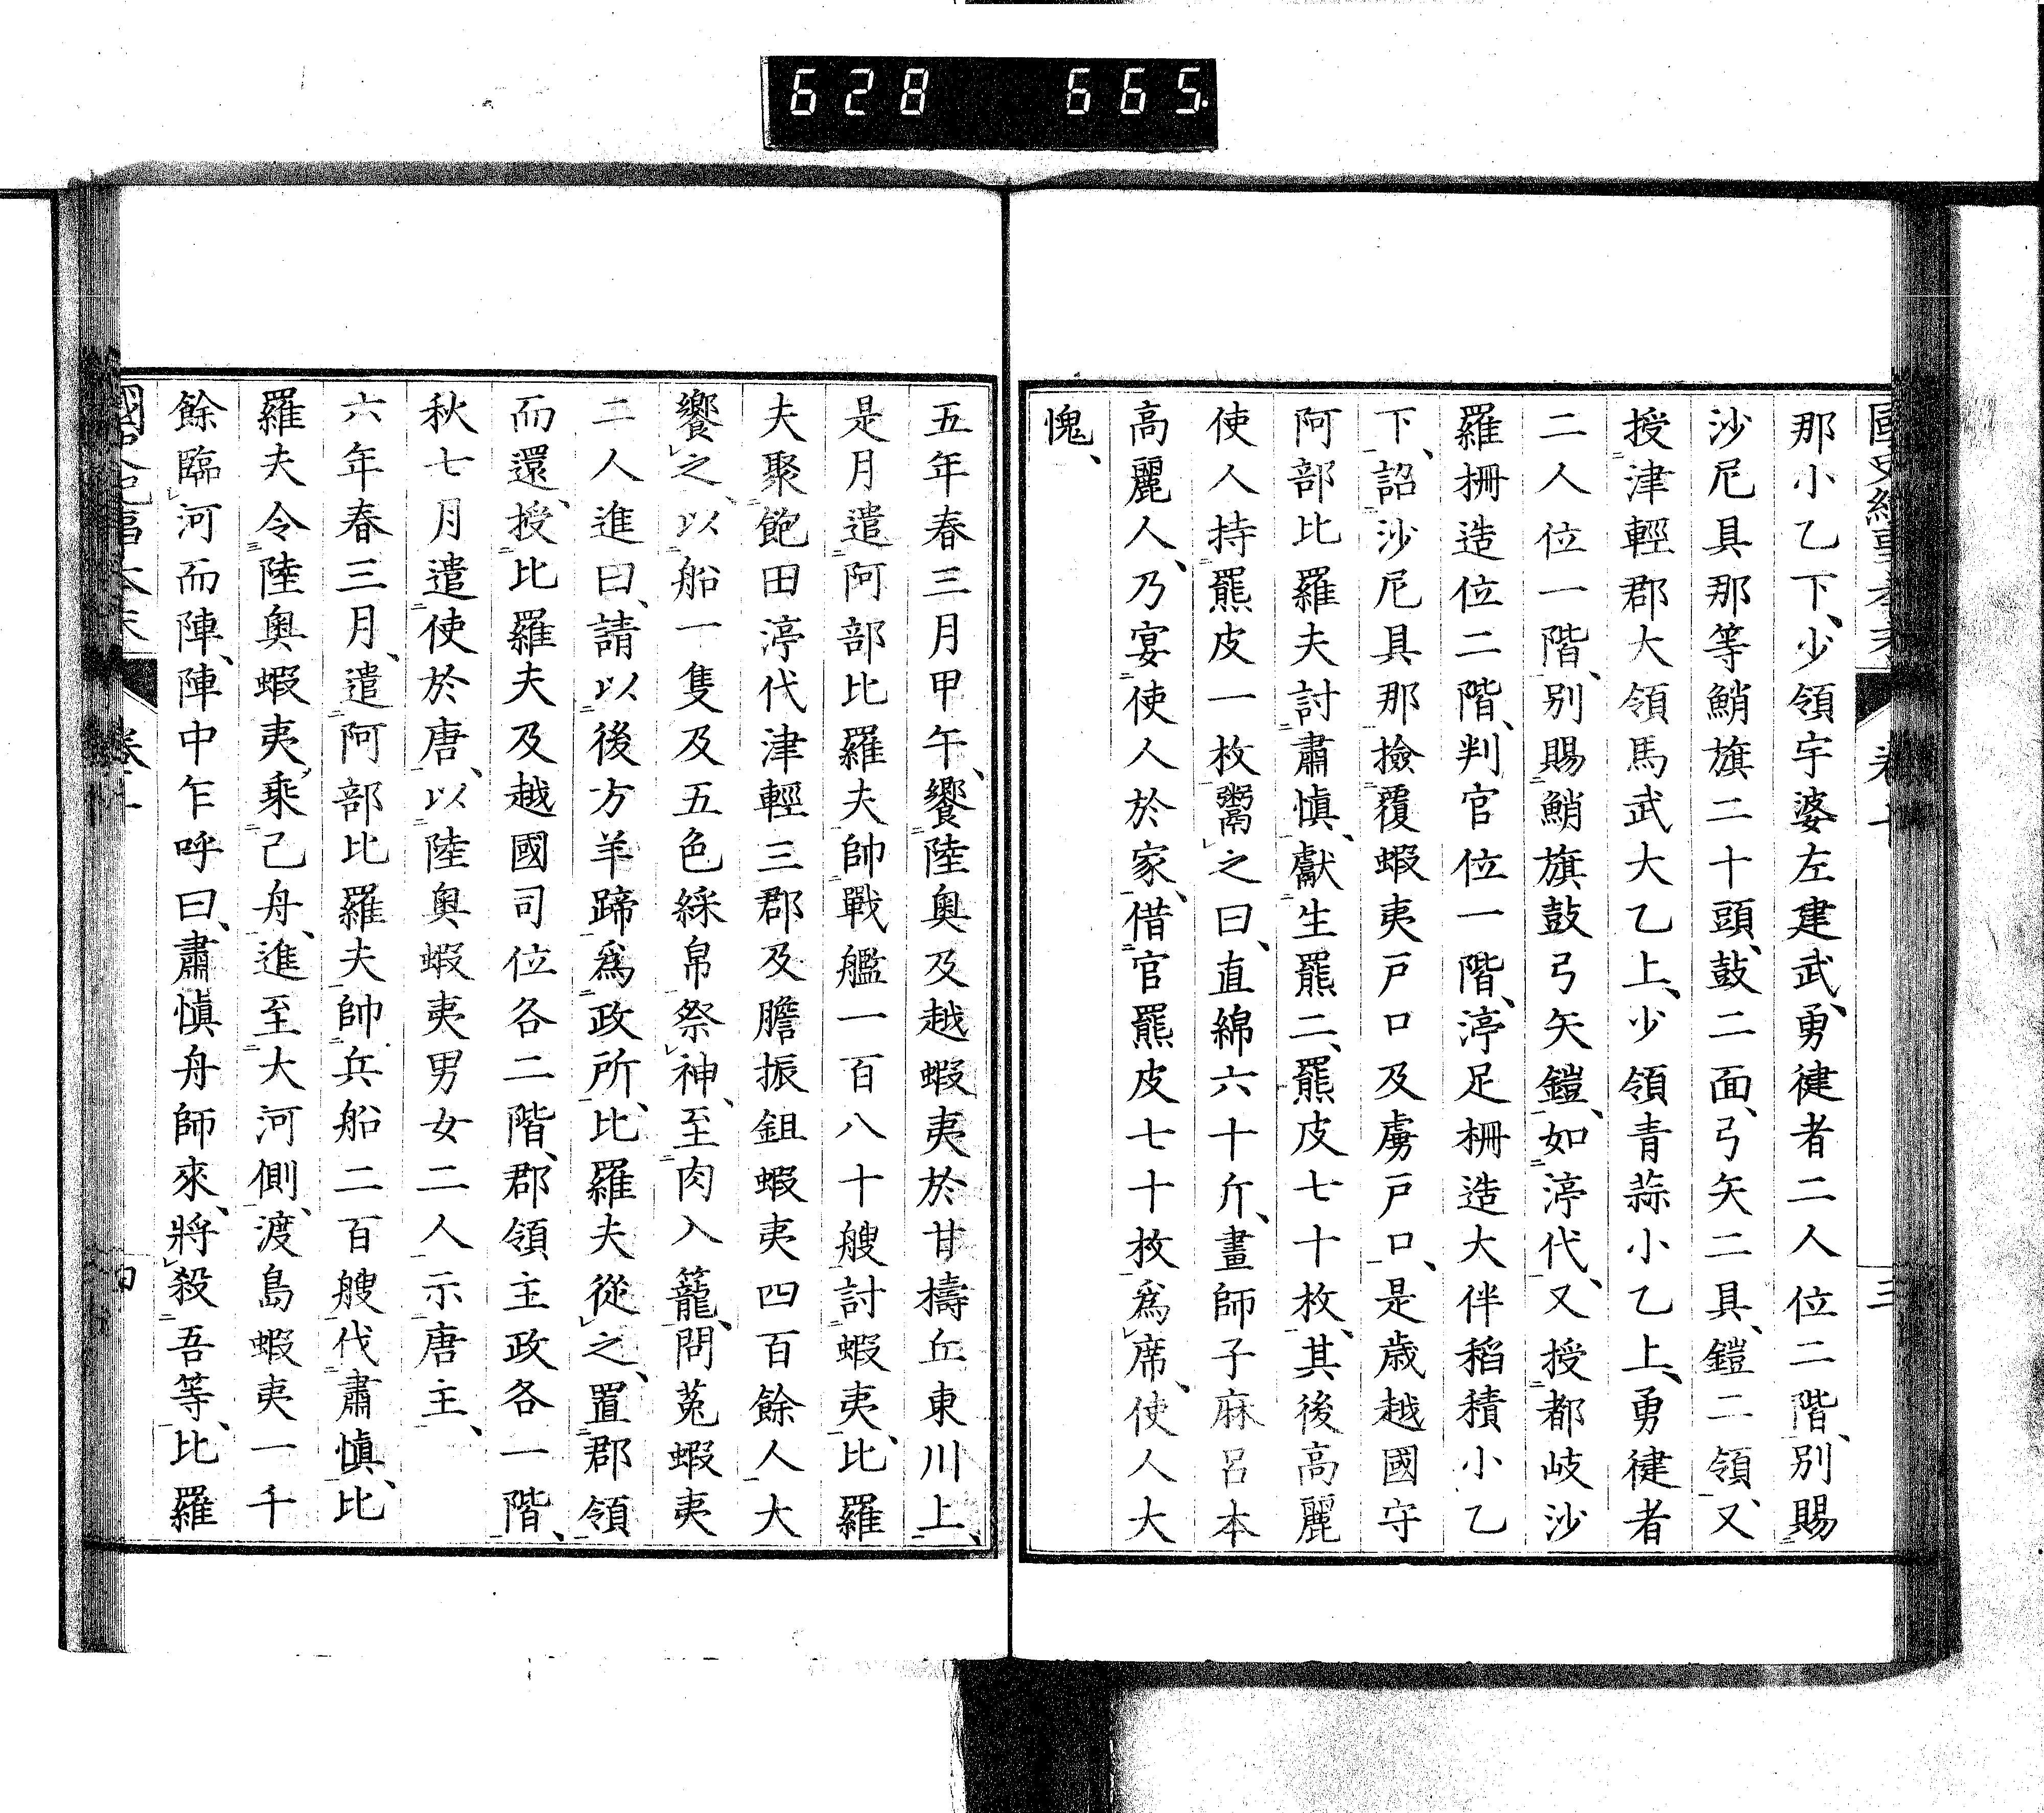 628 665.
那小乙下、少領宇婆左建武、勇健者二人位二階、別賜
沙尼具那等鮹旗二十頭、鼓二面、弓矢二具、鎧二領、又
授津輕郡大領馬武大乙上、少領青蒜小乙上、勇健者
二人位一階、別賜鮹旗鼓弓矢鎧、如渟代、又授都岐沙
羅柵造位二階、判官位一階、渟足柵造大伴稻積小乙
下、詔沙尼具那撿覆蝦夷戸口及虜戸口、是歳越國守
阿部比羅夫討肅愼、獻生羆二、羆皮七十枚、其後高麗
使人持羆皮一枚鬻之曰、直綿六十斤、畫師子麻呂本
高麗人、乃宴使人於家、借官羆皮七十枚爲席、使人大
愧、
五年春三月甲午、饗陸奥及越蝦夷於甘檮丘東川上、
是月遣阿部比羅夫帥戰艦一百八十艘討蝦夷、比羅
夫聚飽田渟代津輕三郡及膽振鉏蝦夷四百餘人大
饗之、以船一隻及五色綵帛祭神、至肉入籠、問菟蝦夷
二人進曰、請以後方羊蹄爲政所、比羅夫從之、置郡領
而還、授比羅夫及越國司位各二階、郡領主政各一階、
秋七月遣使於唐、以陸奥蝦夷男女二人示唐主、
六年春三月、遣阿部比羅夫帥兵船二百艘伐肅愼、比
羅夫令陸奥蝦夷、乘己舟、進至大河側、渡島蝦夷一千
餘臨河而陣、陣中乍呼曰、肅愼舟師來、將殺吾等、比羅